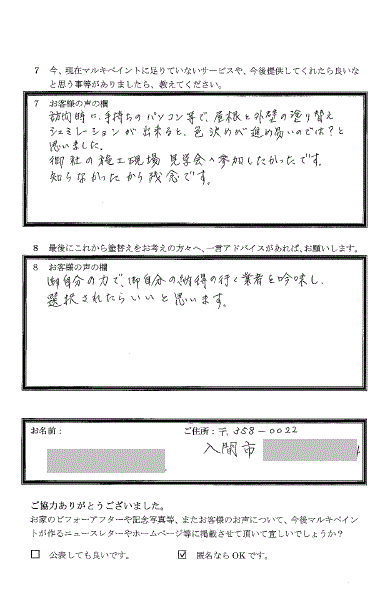 7 今、現在マルキペイントに足りていないサービスや、今後提供してくれたら良いな
と思う事等がありましたら、教えてください。
7 お客様の声の欄
訪問時に、手持ちのパソコン等で、屋根と外壁の塗り替え
シュミレーションが出来ると、色決めが進め易いのでは?と
思いました。
御社の施工現場見学会へ参加したかったです。
知らなかったから残念です。
8 最後にこれから塗替えをお考えの方々へ、一言アドバイスがあれば、お願いします。
8 お客様の声の欄
御自分の力で、御自分の納得の行く業者を吟味し、
選択されたらいいと思います。
お名前:
ご住所:〒358-0022
入間市
ご協力ありがとうございました。
お家のビフォーアフターや記念写真等、またお客様のお声について、今後マルキペイン
トが作るニュースレターやホームページ等に掲載させて頂いて宜しいでしょうか?
□ 公表しても良いです。 ☑ 匿名ならOKです。